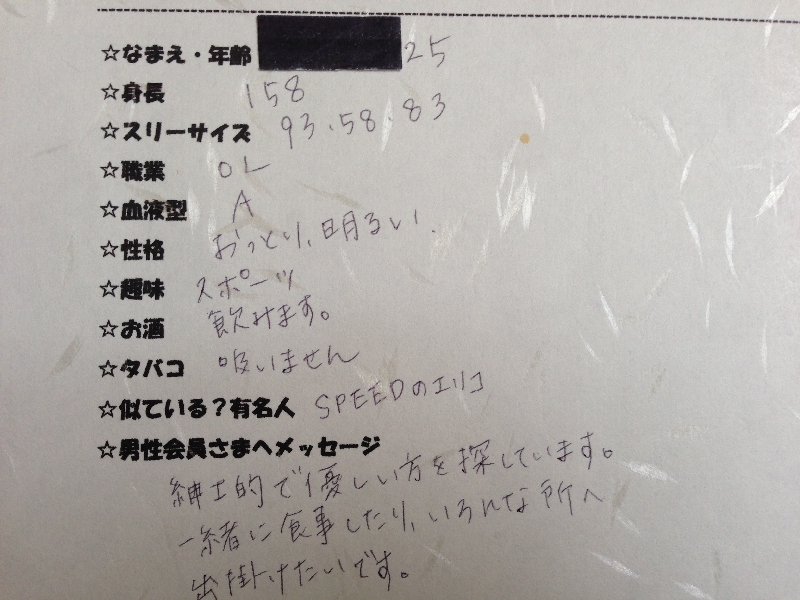 ☆なまえ・年齢 25
☆身長 158
☆スリーサイズ 93.58.83
☆職業 OL
☆血液型 A
☆性格 おっとり、明るい.
☆趣味 スポーツ
☆お酒 飲みます。
☆タバコ 吸いません
☆似ている?有名人 SPEEDのエリコ
☆男性会員さまへメッセージ
紳士的で優しい方を探しています。
一緒に食事したり、いろんな所へ
出掛けたいです。